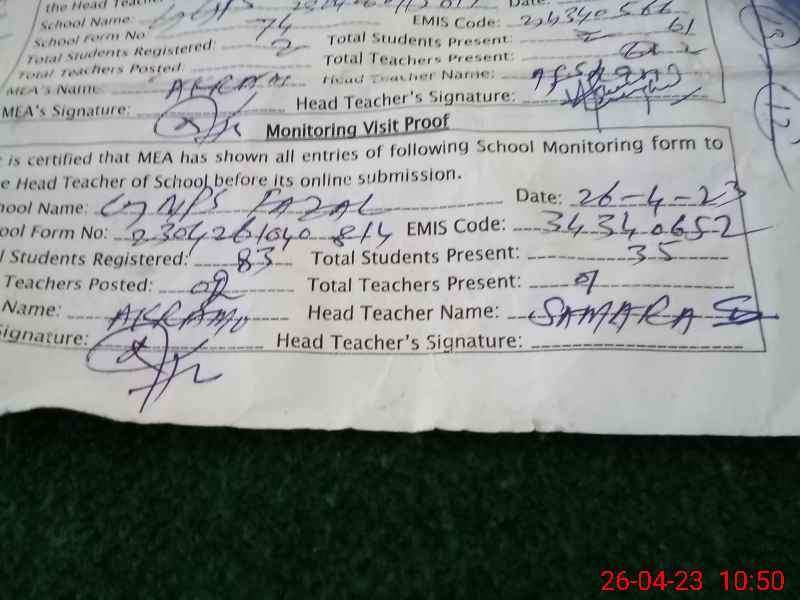 the Head Teacher
Date:
School Name: EMIS Code:
School Form No 74
Total Students Registered: Total Students Present: 61
Total Teachers Posted: 2 Total Teachers Present: 2
MEA's Name AKRAM Head Teacher Name:
MEA's Signature: Head Teacher's Signature:
Monitoring Visit Proof
is certified that MEA has shown all entries of following School Monitoring form to
e Head Teacher of School before its online submission.
hool Name: GMPS FAZAL Date: 26-4-23
ool Form No: 2304261040 814 EMIS Code: 34340652
l Students Registered: 83 Total Students Present: 35
Teachers Posted: 02 Total Teachers Present: 01
Name: AKRAM Head Teacher Name: SAMARA S
Signature: Head Teacher's Signature:
26-04-23 10:50